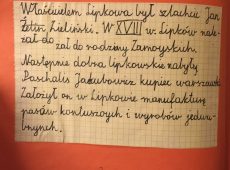 Właścicielem Lipkowa był szlachcic Jan
Żeltn Zieliński. W XVIII w Lipków nale-
żał do żał do rodziny Zamoyskich.
Następnie dobra lipkowskie nabył
Paschalis Jakubowicz kupiec warszawski
Założył on w Lipkowie manufakturę
pasów kontuszowych i wyrobów jedwa-
bnych.